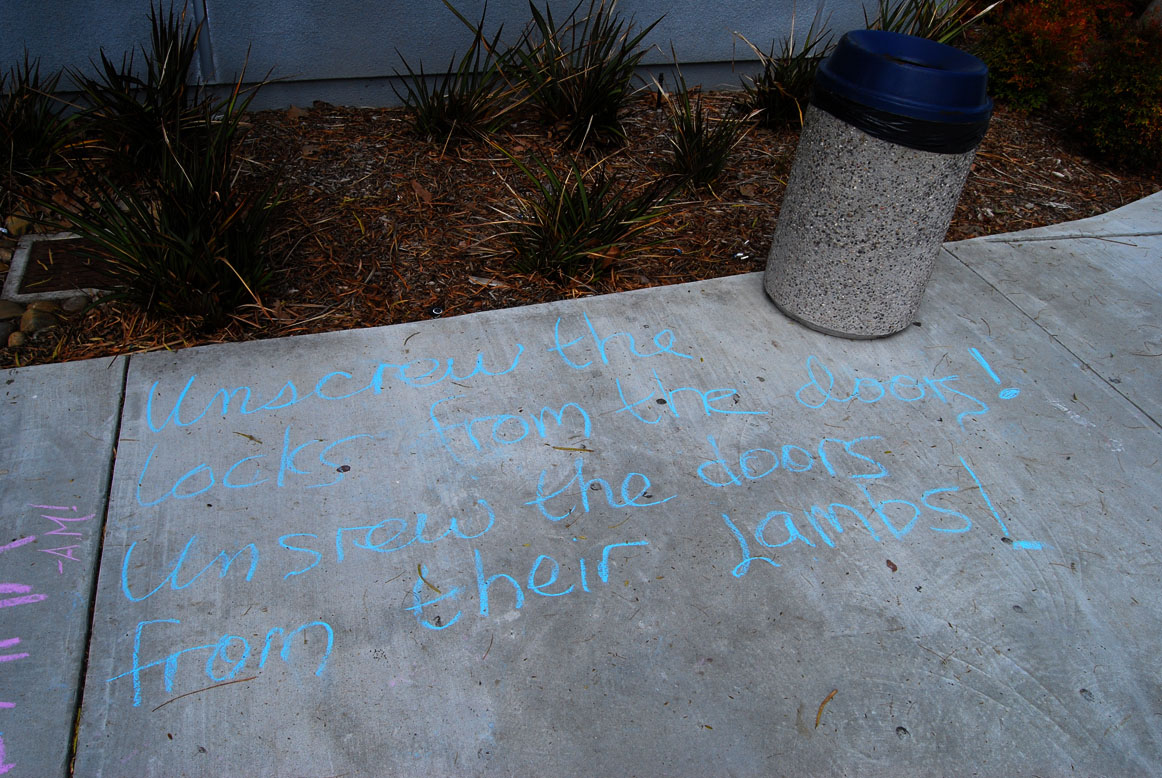 Unscrew the
Locks from the doors!
Unsrew the doors
from their Lambs!
-AM!